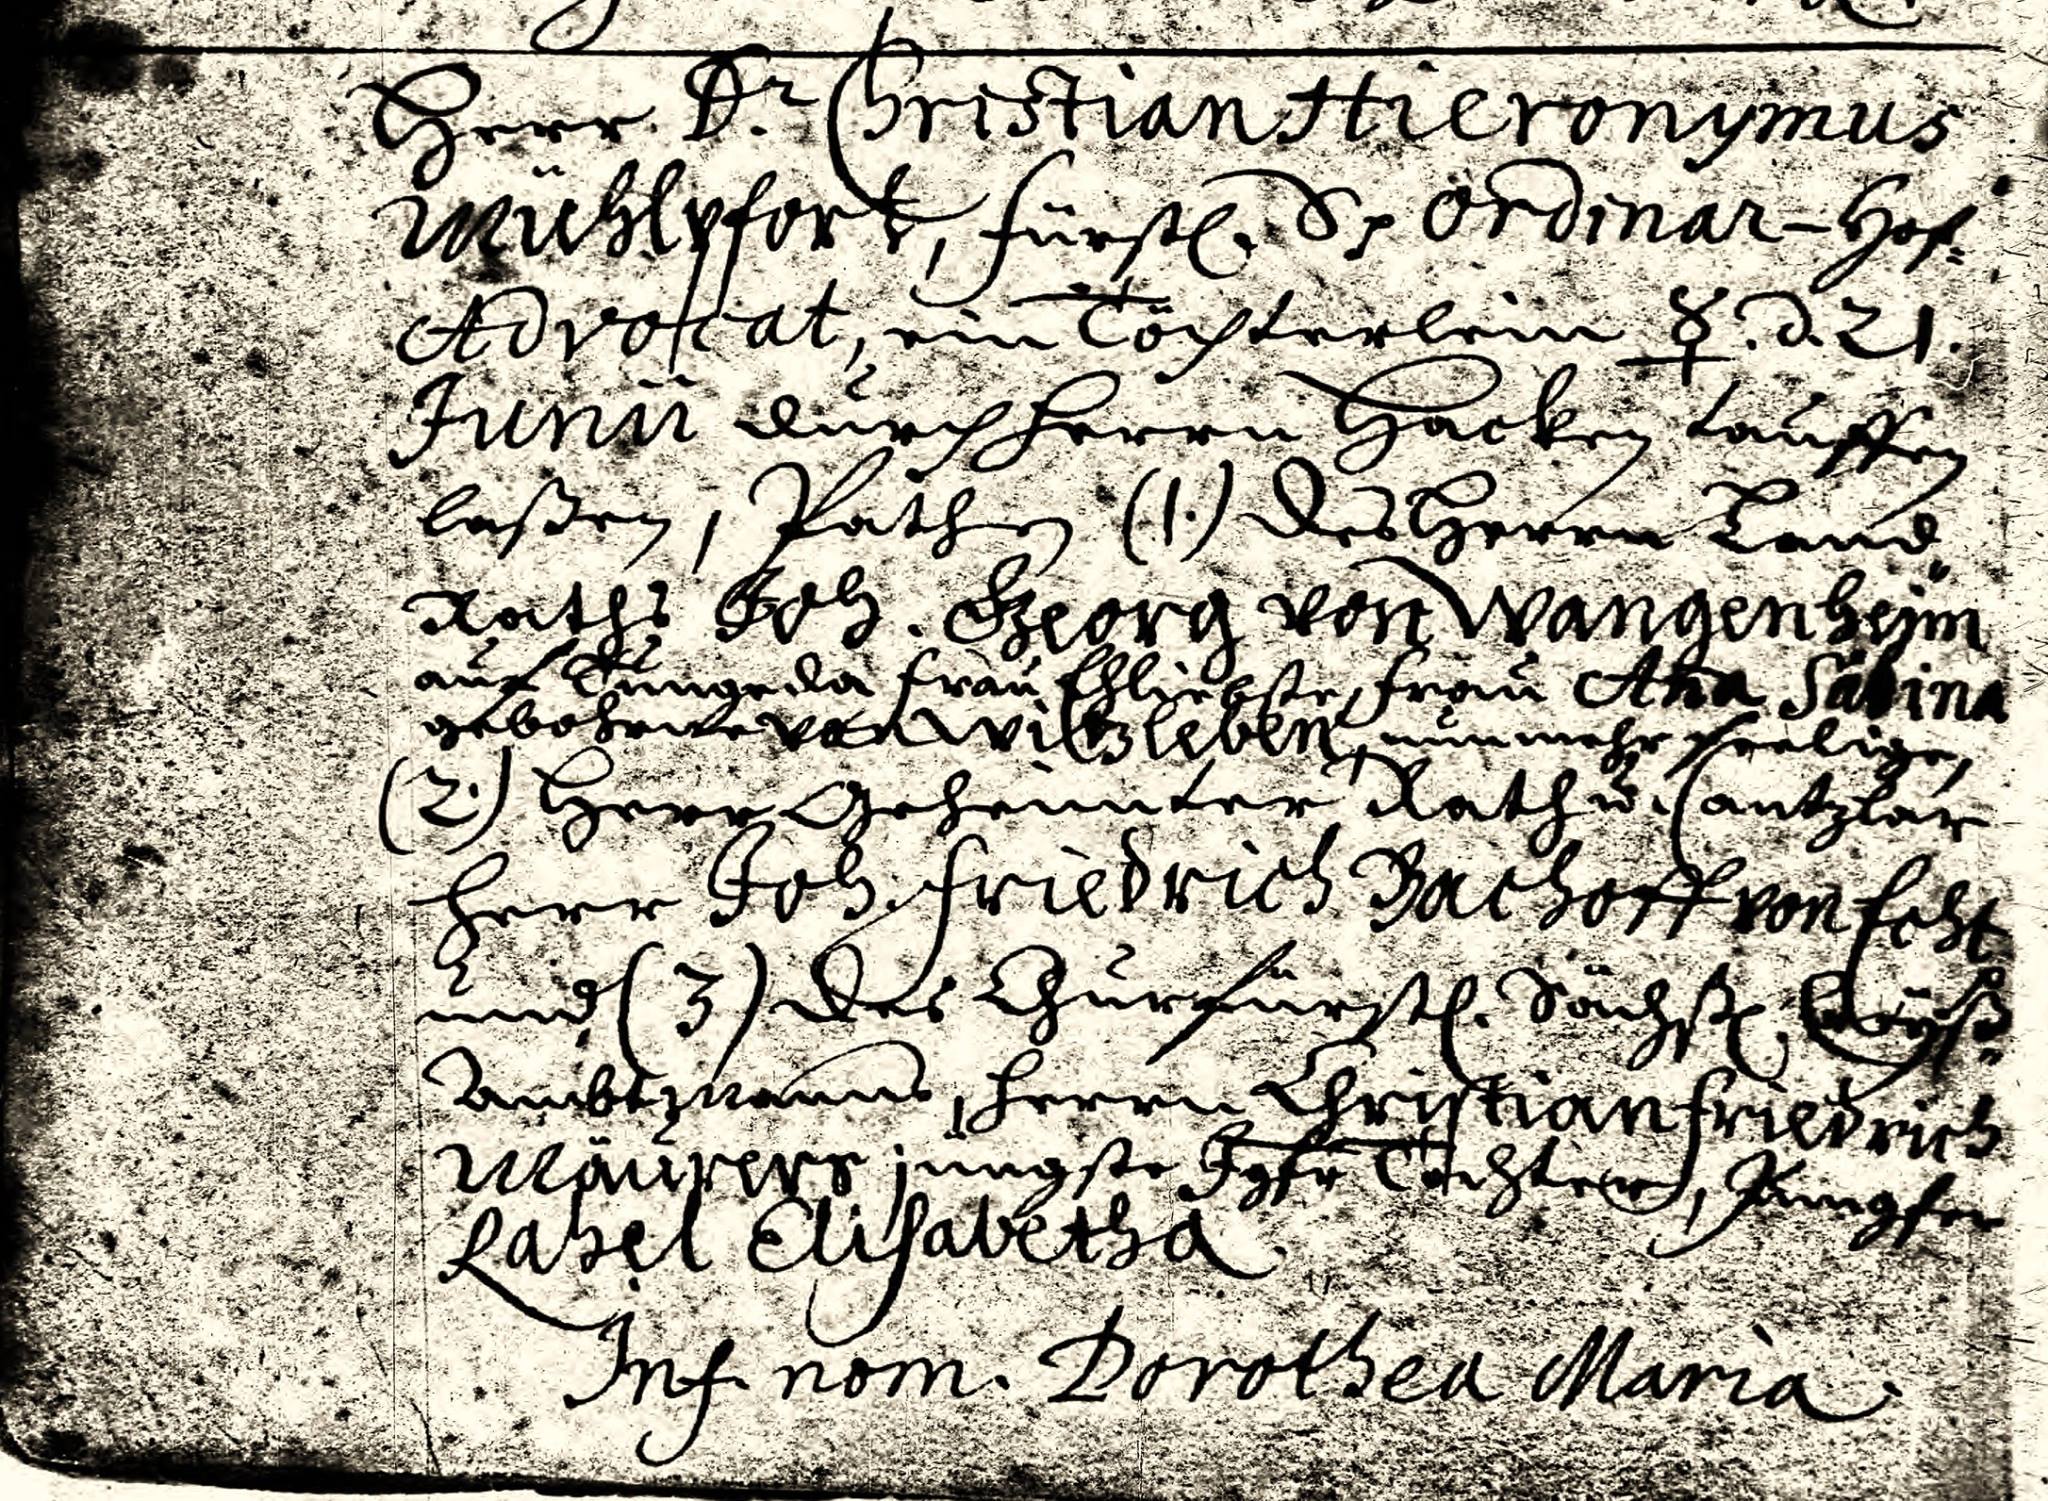 Herr Dr Christian Hieronymus
Mühlpfort, fürstl. S. Ordinar-Hof-
Advocat, ein Töchterlein ☿. d. 21.
Junii durch Herrn Hacken tauffen
laßen, Pathen (1.) des Herrn Land
Raths Joh. Georg von Wangenheim
auf Tüngeda Frau Ehliebste, Frau Aña Sabina
gebohrne von Witzleben, nunmehr seelige,
(2.) Herr Geheimter Rath u. Cantzlar
Herr Joh. Friedrich Bachoff von Echt
und (3) des Churfürstl. Sächß. Creyß-
Ambtmanns, Herrn Christian Friedrich
Mäurers jüngste Jgfr Tochter, Jungfer
Rahel Elisabetha
Inf. nom. Dorothea Maria.